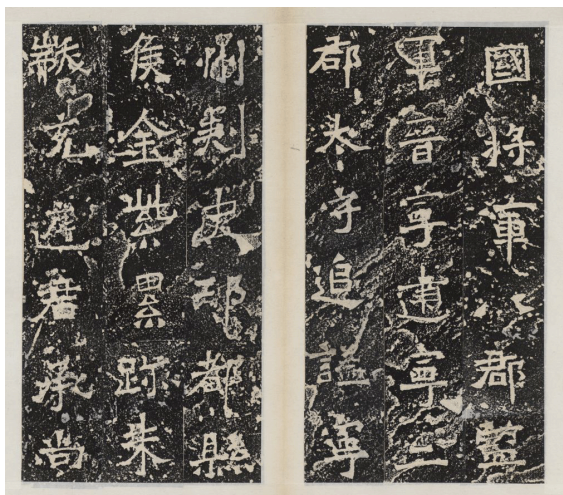 國將軍八郡監
軍晉寧建寧二
郡太守追謚寧
州刺史邛都縣
侯金紫累跡朱
黻充庭君承尚